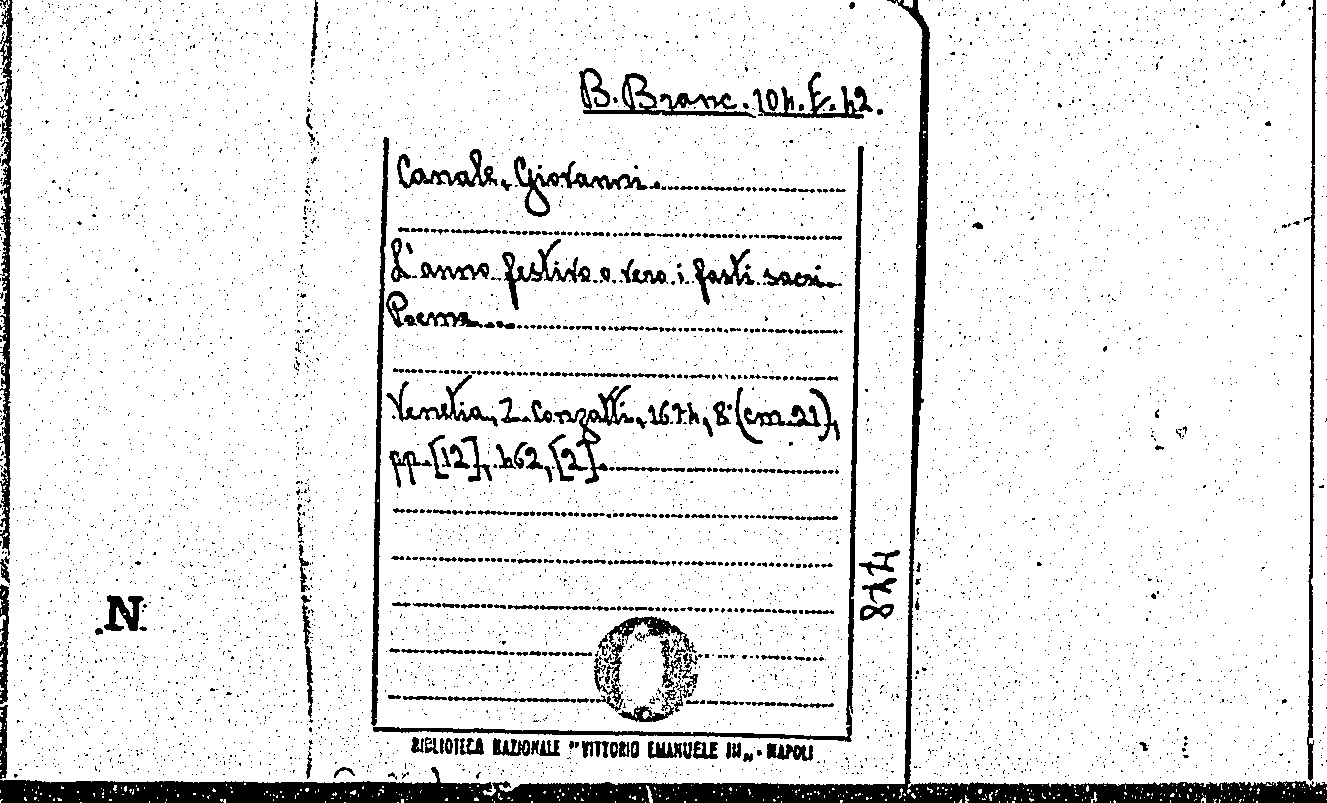 B. Branc. 104.E.42.
Canale, Giovanni.
L'anno festivo o vero i fasti sacri.
Poema...
Venetia, Z. Conzatti, 1674, 8° (cm. 21),
pp. [12], 462, [2].
.N.
BIBLIOTECA NAZIONALE "VITTORIO EMANUELE III„ - NAPOLI